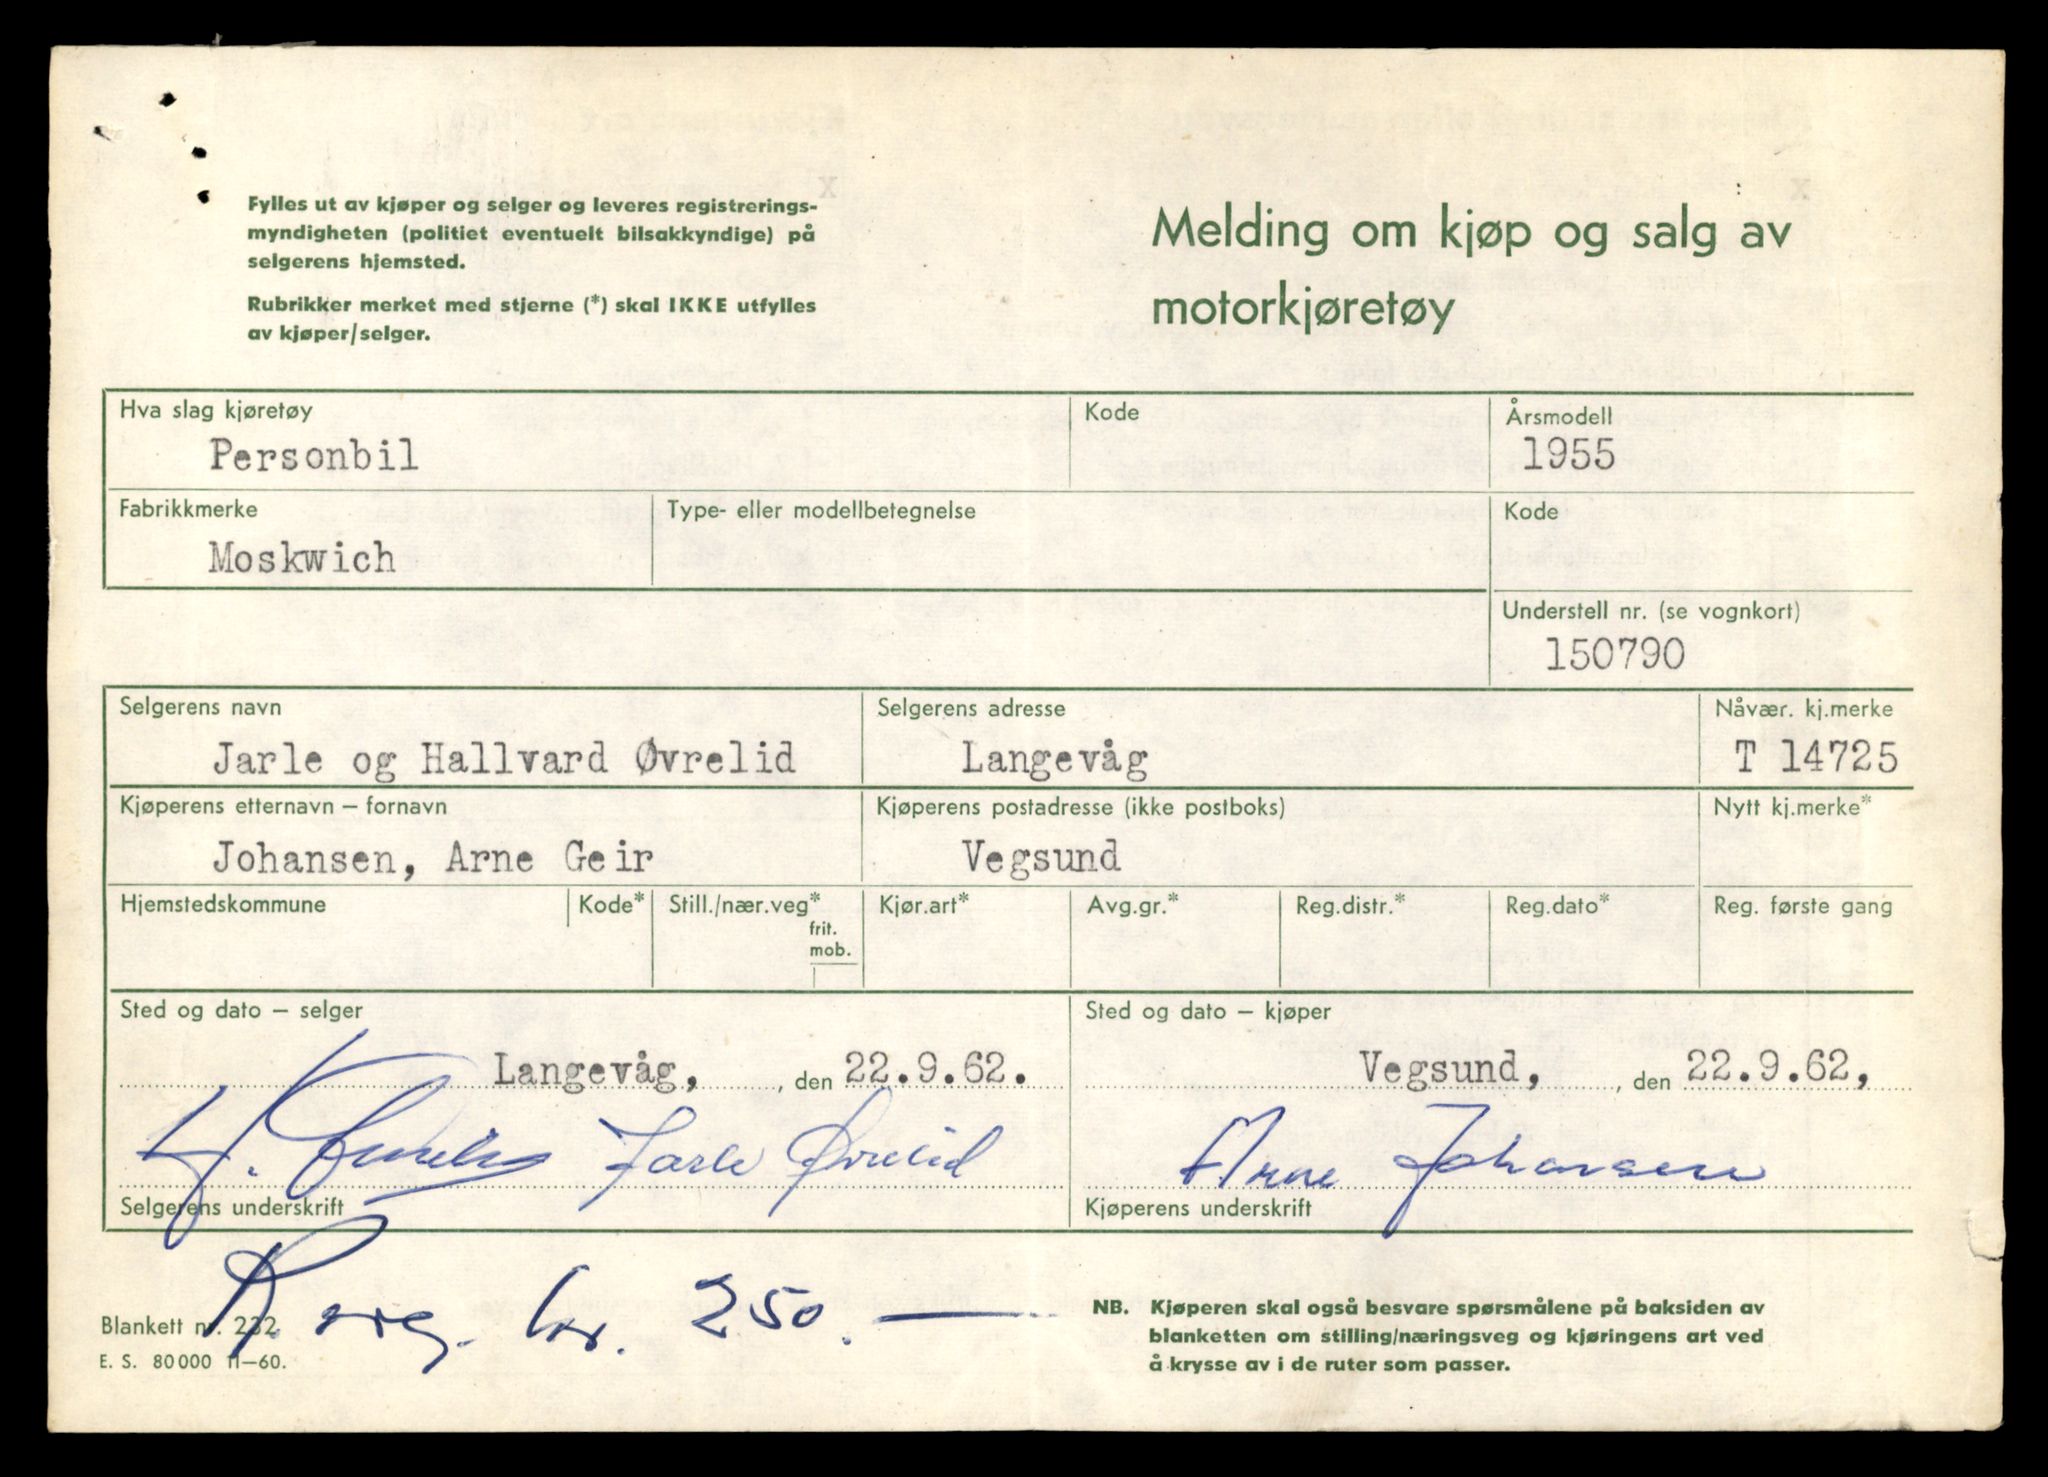 Fylles ut av kjøper og selger og leveres registrerings-
myndigheten (politiet eventuelt bilsakkyndige) på
selgerens hjemsted.
Rubrikker merket med stjerne (*) skal IKKE utfylles
av kjøper/selger.
Melding om kjøp og salg av
motorkjøretøy
Hva slag kjøretøy
Personbil
Kode
Årsmodell
1955
Fabrikkmerke
Moskwich
Type- eller modellbetegnelse
Kode
Understell nr. (se vognkort)
150790
Selgerens navn
Jarle og Hallvard Øvrelid
Selgerens adresse
Langevåg
Nåvær. kj.merke
T 14725
Kjøperens etternavn – fornavn
Johansen, Arne Geir
Kjøperens postadresse (ikke postboks)
Vegsund
Nytt kj.merke*
Hjemstedskommune
Kode*
Still./nær.veg*
frit.
mob.
Kjør.art*
Avg.gr.*
Reg.distr.*
Reg.dato*
Reg. første gang
Sted og dato – selger
Langevåg, , den 22.9.62.
Jarle Øvrelid
Selgerens underskrift
Sted og dato – kjøper
Vegsund, , den 22.9.62,
Arne Johansen
Kjøperens underskrift
kr. 250.—
Blankett nr. 232.
E. S. 80000 11–60.
NB. Kjøperen skal også besvare spørsmålene på baksiden av
blanketten om stilling/næringsveg og kjøringens art ved
å krysse av i de ruter som passer.